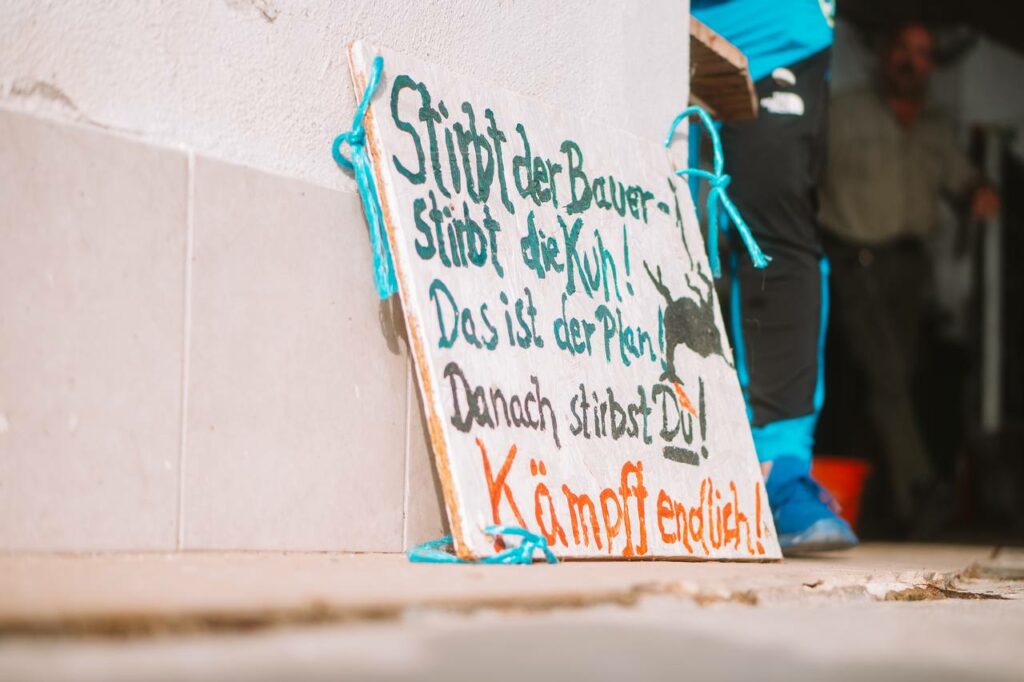 Stirbt der Bauer -
stirbt die Kuh!
Das ist der Plan!
Danach stirbst Du!
Kämpft endlich!